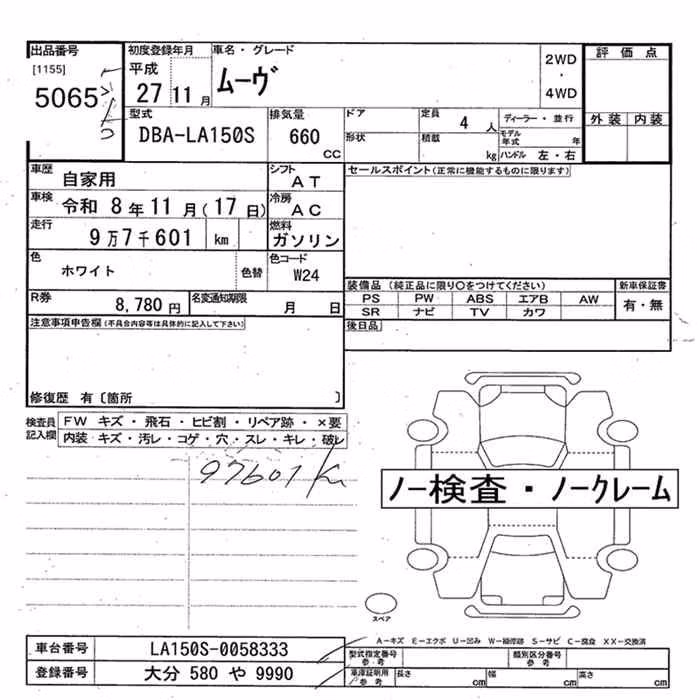 出品番号 初度登録年月 車名・グレード 2WD 評価点
[1155] 平成 ムーヴ ・
5065 27 11月 4WD
型式 排気量 ドア 定員 4人 ディーラー・並行 外装 内装
DBA-LA150S 660 CC 形状 積載 kg モデル年式 年
ハンドル 左・右
車歴 自家用 シフト AT セールスポイント(正常に機能するものに限ります)
車検 令和 8年11月(17日) 冷房 AC
走行 9万7千601 km 燃料 ガソリン
色 ホワイト 色替 色コード W24
装備品 (純正品に限り○をつけてください) 新車保証書
R券 8,780円 名変通知期限 月 日 PS PW ABS エアB AW 有・無
SR ナビ TV カワ
注意事項申告欄(不具合内容等は具体的に記入して下さい) 後日品
修復歴 有〔箇所 〕
検査員記入欄 FW キズ・飛石・ヒビ割・リペア跡・×要
内装 キズ・汚レ・コゲ・穴・スレ・キレ・破レ
97601 Km
ノー検査・ノークレーム
スペア
A-キズ E-エクボ U-凹み W-補修跡 S-サビ C-腐食 XX-交換済
車台番号 LA150S-0058333 型式指定番号 参考 類別区分番号 参考
登録番号 大分 580 や 9990 車庫証明用 参考 長さ cm 幅 cm 高さ cm